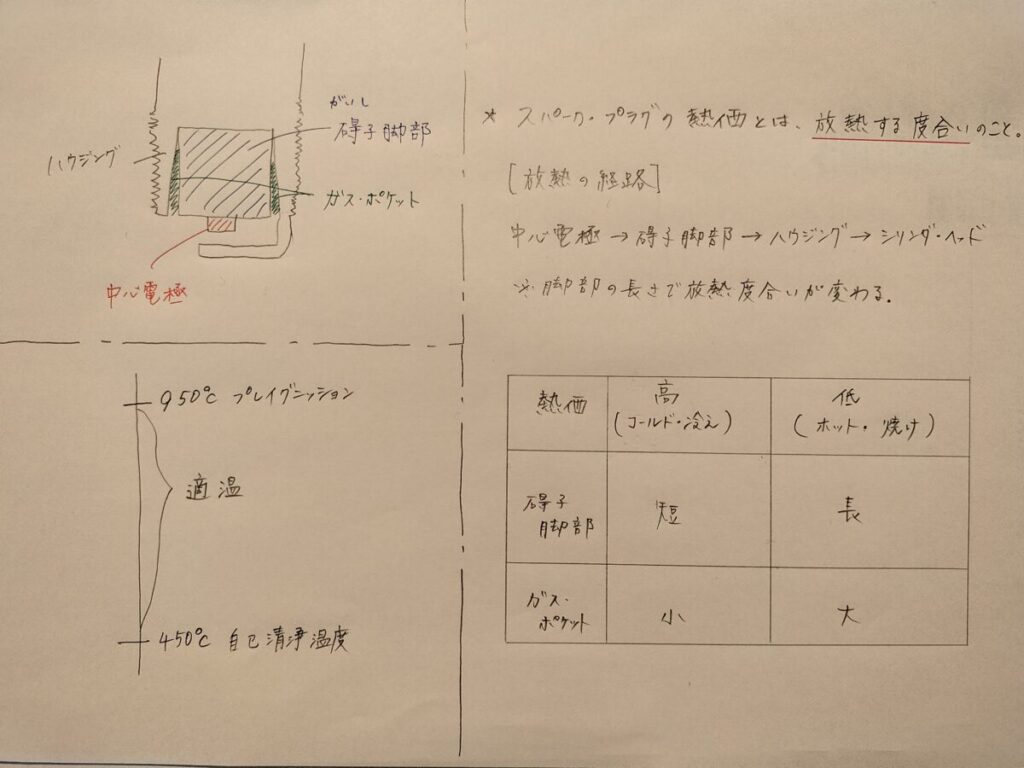 がいし
碍子脚部
ハウジング
ガス・ポケット
中心電極
* スパーク・プラグの熱価とは、放熱する度合いのこと。
[放熱の経路]
中心電極→碍子脚部→ハウジング→シリンダ・ヘッド
※脚部の長さで放熱度合いが変わる.
950℃ プレイグニッション
適温
450℃ 自己清浄温度
熱価 高 低
(コールド・冷え) (ホット・焼け)
碍子
脚部 短 長
ガス・
ポケット 小 大